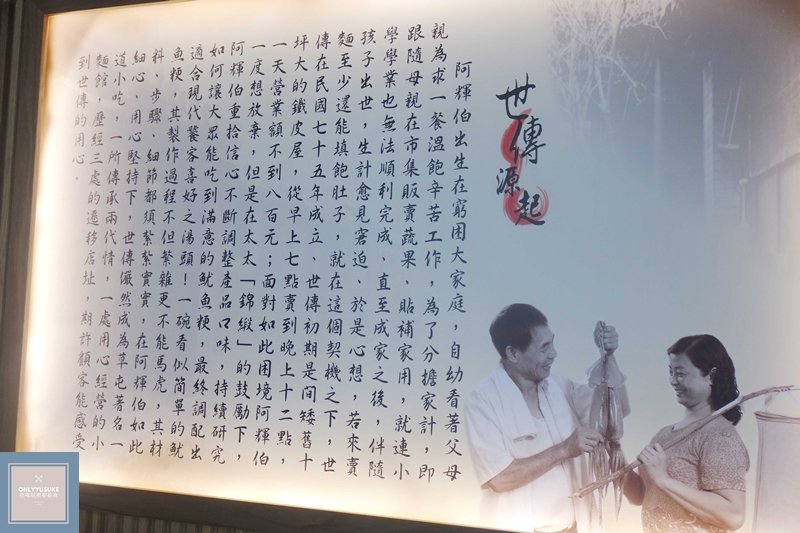 世傳源起
阿輝伯出生在窮困大家庭，自幼看著父母
親為求一餐溫飽辛苦工作，為了分擔家計，即
跟隨母親在市集販賣蔬果、貼補家用，就連小
學學業也無法順利完成、直至成家之後，伴隨
孩子出世，生計愈見窘迫、於是心想，若來賣
麵至少還能填飽肚子，就在這個契機之下，世
傳在民國七十五年成立、世傳初期是間矮舊十
坪大的鐵皮屋，從早上七點賣到晚上十二點，
一天營業額不到八百元；面對如此困境阿輝伯
一度想放棄，但是在太太「錦緞」的鼓勵下，
阿輝伯重拾信心不斷調整產品口味，持續研究
如何讓大眾能吃到滿意的魷魚粳，最終調配出
適合現代饕客喜好之湯頭！一碗看似簡單的魷
魚粳，其製作過程不但繁雜更不能馬虎，其材
料、步驟、細節都須紮紮實實，在阿輝伯如此
細心、用心堅持下，世傳儼然成為草屯著名一
道小吃，一所傳承兩代情，一處用心經營的小
麵館，歷經三處的遷移店址，期許顧客能感受
到世傳的用心。
ONLYYUSUKE